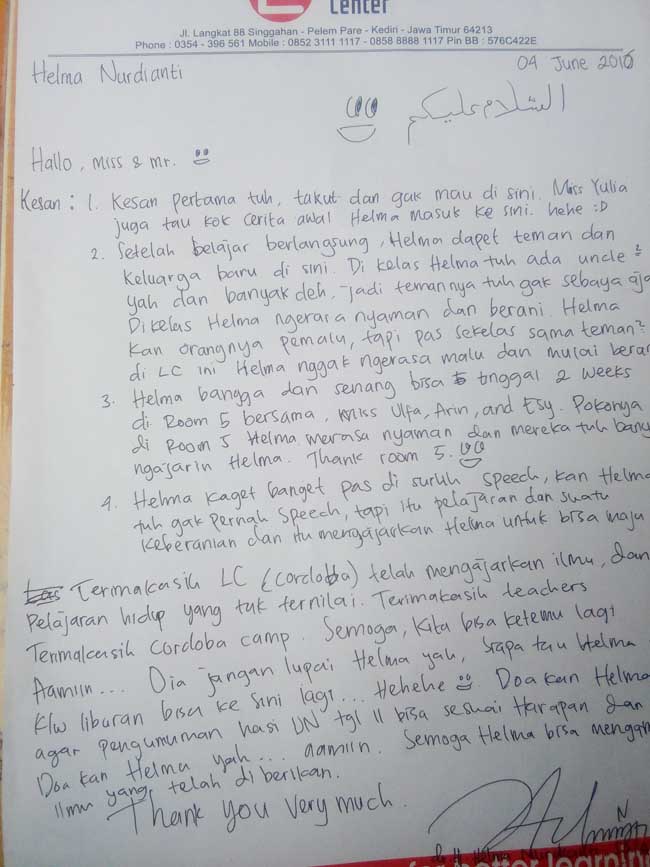 Center
Jl. Langkat 88 Singgahan - Pelem Pare - Kediri - Jawa Timur 64213
Phone : 0354 - 396 561 Mobile : 0852 3111 1117 - 0858 8888 1117 Pin BB : 576C422E
Helma Nurdianti
04 June 2016
السلام عليكم
Hallo, miss & mr.
Kesan : 1. Kesan pertama tuh, takut dan gak mau di sini. Miss Yulia
juga tau kok cerita awal Helma masuk ke sini. hehe :D
2. Setelah belajar berlangsung, Helma dapet teman dan
keluarga baru di sini. Di kelas Helma tuh ada uncle²
yah dan banyak deh, jadi temannya tuh gak sebaya aja
Dikelas Helma ngerasa nyaman dan berani. Helma
kan orangnya pemalu, tapi pas sekelas sama teman²
di LC ini Helma nggak ngerasa malu dan mulai beran
3. Helma bangga dan senang bisa tinggal 2 weeks
di Room 5 bersama, Miss Ulfa, Arin, and Esy. Pokonya
di Room 5 Helma merasa nyaman dan mereka tuh bany
ngajarin Helma. Thank room 5.
4. Helma kaget banget pas di suruh Speech, kan Helma
tuh gak pernah Speech, tapi itu pelajaran dan suatu
keberanian dan itu mengajarkan Helma untuk bisa maju
Terimakasih LC (Cordoba) telah mengajarkan ilmu, dan
Pelajaran hidup yang tak ternilai. Terimakasih teachers
Terimakasih Cordoba camp. Semoga, Kita bisa ketemu lagi
Aamiin... Oia jangan lupai Helma yah, Siapa tau Helma
Klw liburan bisa ke sini lagi... Hehehe Doa kan Helma
agar pengumuman hasi UN tgl 11 bisa sesuai Harapan dan
Doa kan Helma yah... aamiin. Semoga Helma bisa mengam
ilmu yang telah di berikan.
Thank you very much.